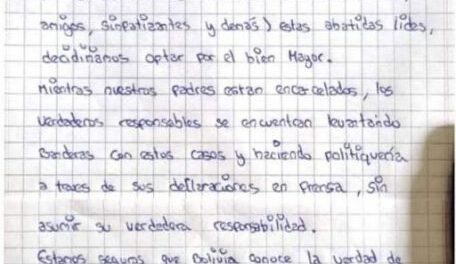 amigos, simpatizantes y demás) estas abatidas lides,
decidiríamos optar por el bien Mayor.
Mientras nuestros padres estan encarcelados, los
verdaderos responsables se encuentran levantando
Banderas con estos casos y haciendo politiquería
a traves de sus declaraciones en Prensa, sin
asumir su verdadera responsabilidad.
Estamos seguros que Bolivia conoce la verdad de